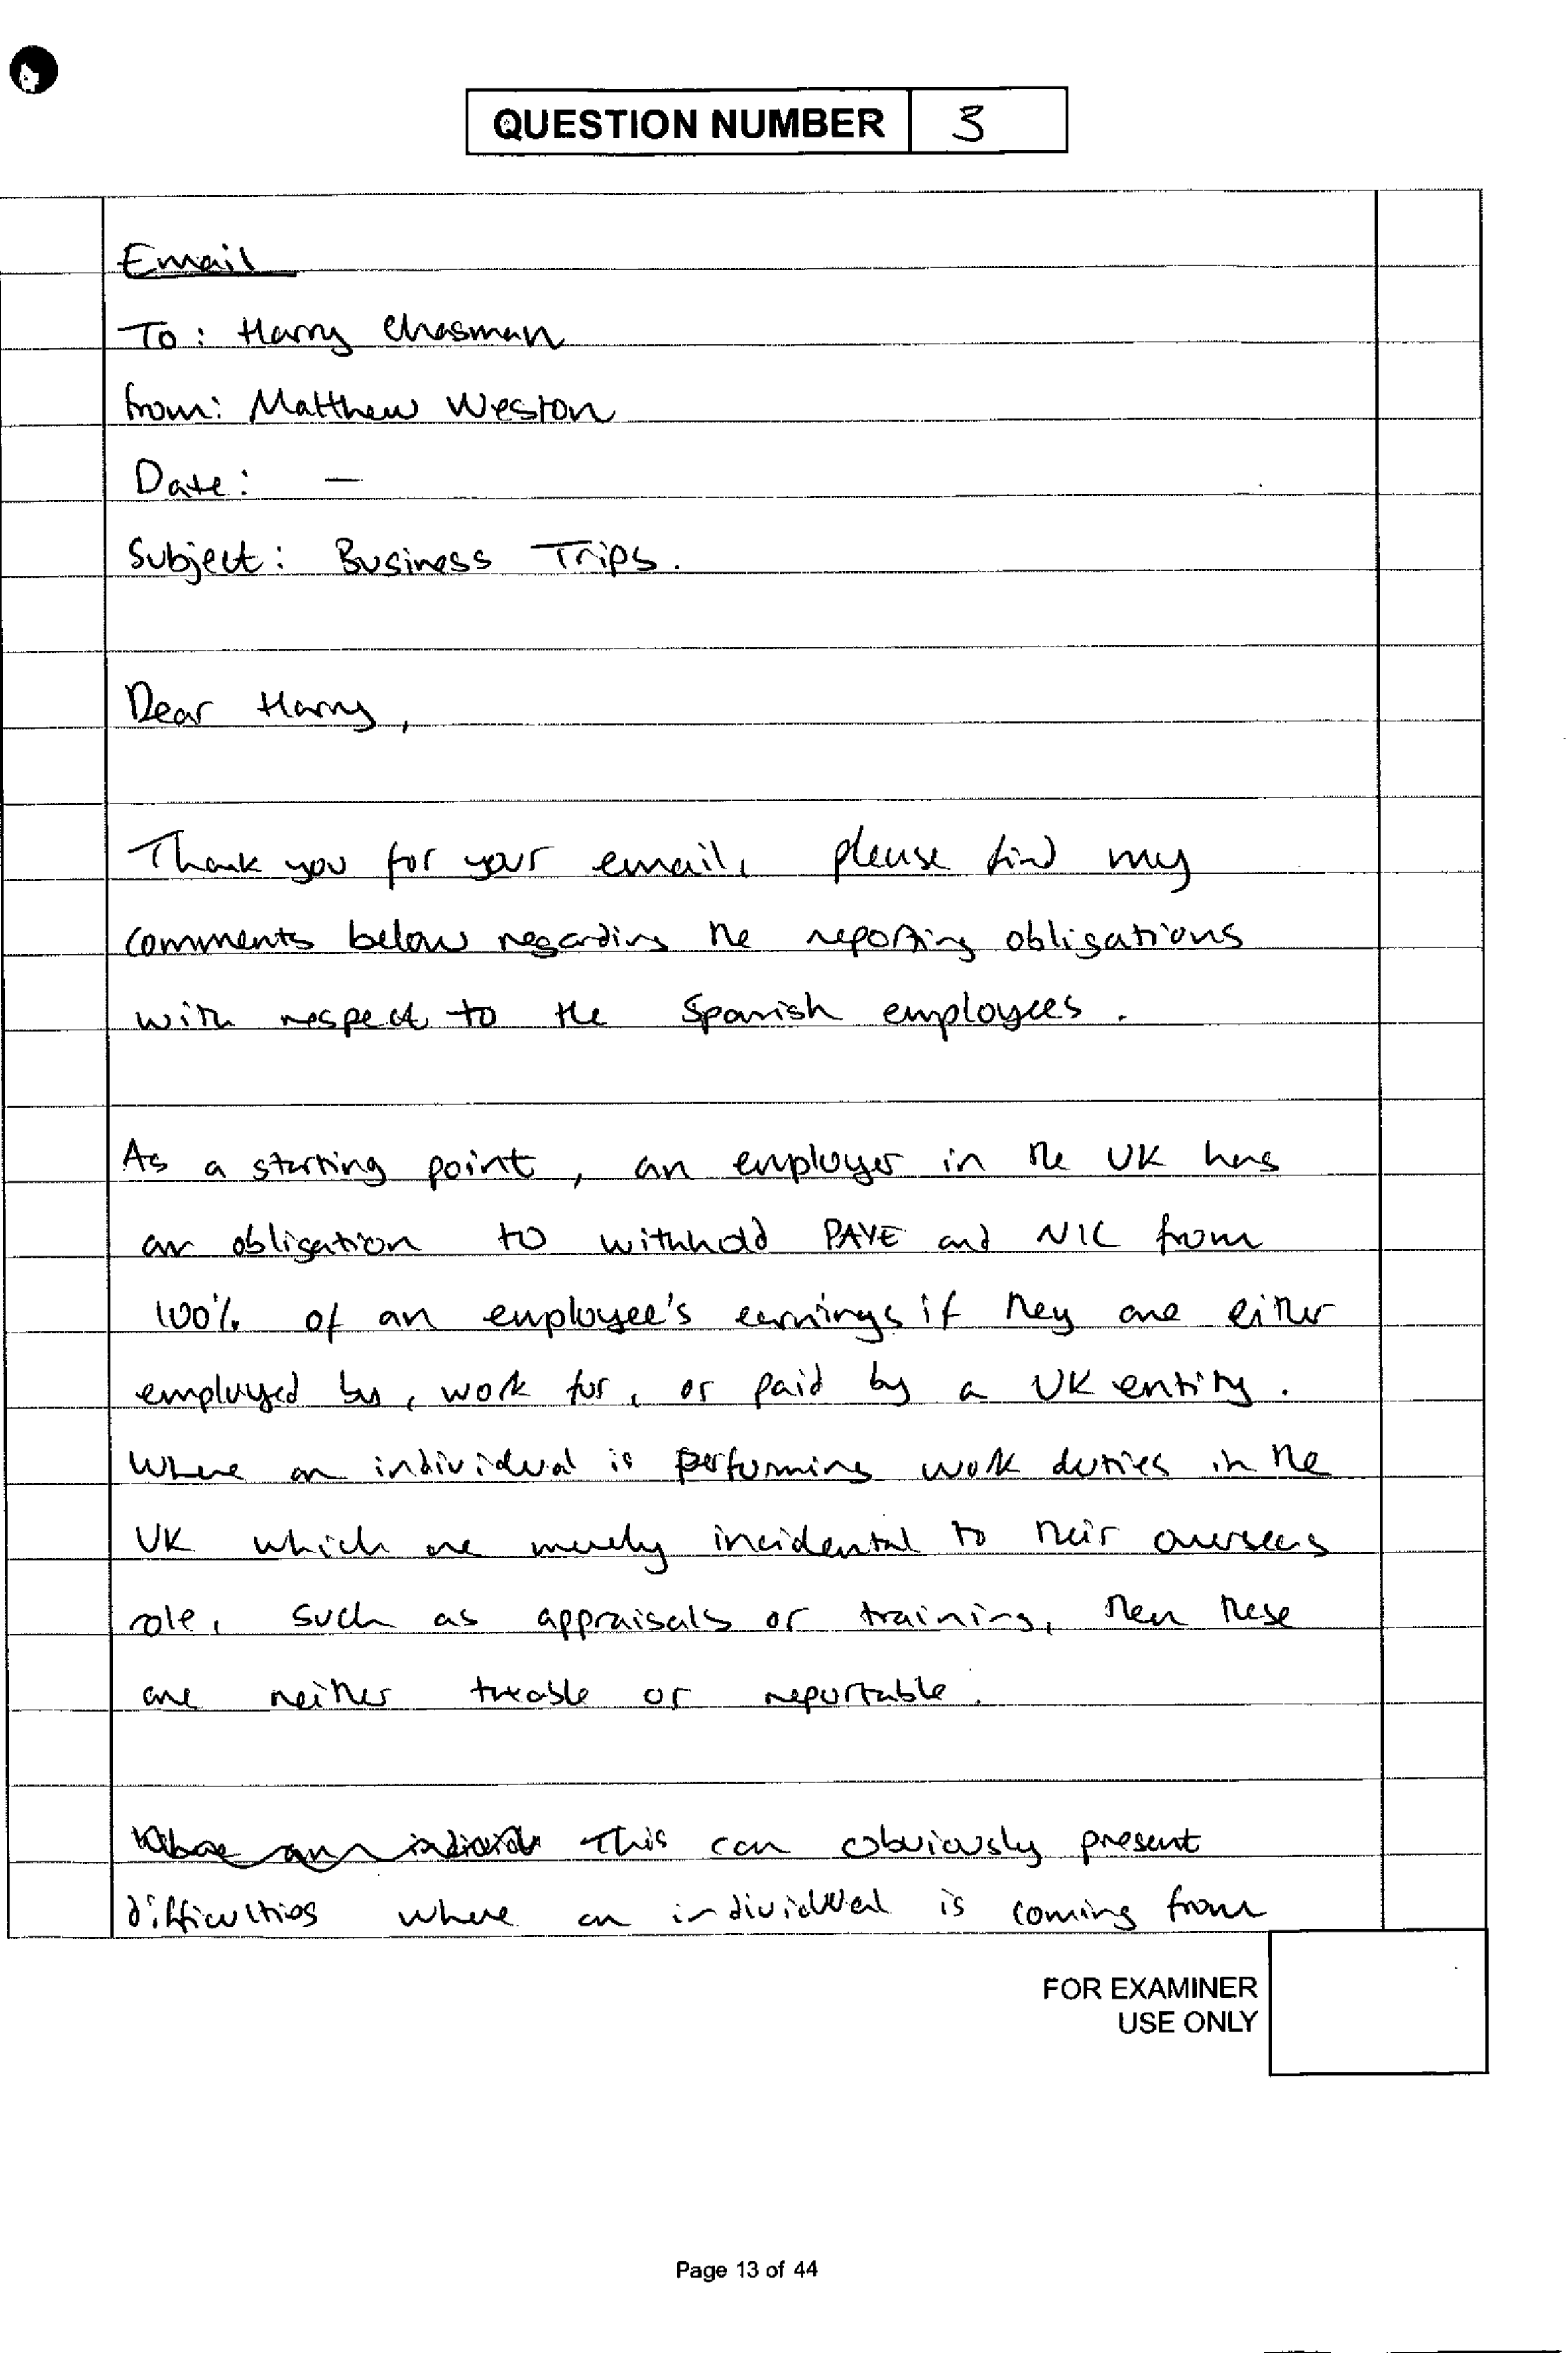 QUESTION NUMBER 3
Email
To: Harry Chasman
From: Matthew Weston
Date: —
Subject: Business Trips.
Dear Harry,
Thank you for your email, please find my
comments below regarding the reporting obligations
with respect to the Spanish employees.
As a starting point, an employer in the UK has
an obligation to withhold PAYE and NIC from
100% of an employee's earnings if they are either
employed by, work for, or paid by a UK entity.
Where an individual is performing work duties in the
UK which are merely incidental to their overseas
role, such as appraisals or training, then these
are neither taxable or reportable.
This can obviously present
difficulties where an individual is coming from
FOR EXAMINER
USE ONLY
Page 13 of 44